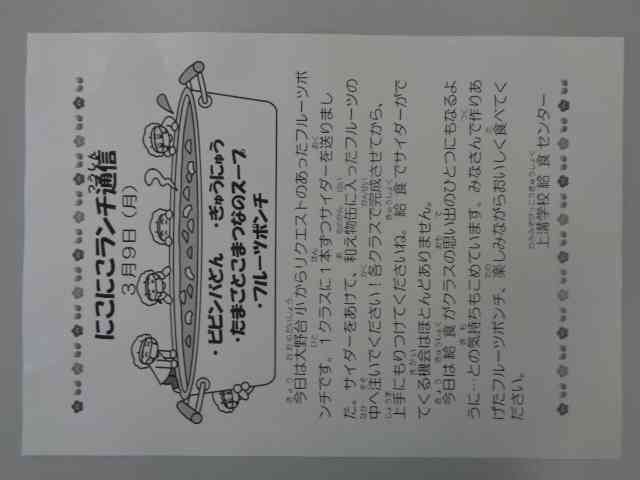 にこにこランチ通信
３月９日（月）
・ビビンバどん　・ぎゅうにゅう
・たまごとこまつなのスープ
・フルーツポンチ
今日は大野台小からリクエストのあったフルーツポ
ンチです。１クラスに１本ずつサイダーを送りまし
た。サイダーをあけて、和え物缶に入ったフルーツの
中へ注いでください！各クラスで完成させてから、
上手にもりつけてくださいね。給食でサイダーがで
てくる機会はほとんどありません。
今日は給食がクラスの思い出のひとつにもなるよ
うに…との気持ちもこめています。みなさんで作りあ
げたフルーツポンチ、楽しみながらおいしく食べてく
ださい。
上溝学校給食センター